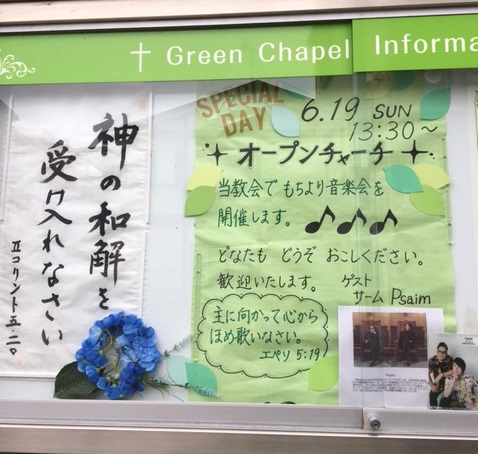 † Green Chapel Informa
神の和解を
受け入れなさい
Ⅱコリント五・二〇
SPECIAL
DAY
6.19 SUN
13:30～
オープンチャーチ
当教会で もちより音楽会を
開催します。
どなたも どうぞ おこしください。
歓迎いたします。
ゲスト
サーム Psaim
主に向かって心から
ほめ歌いなさい。
エペソ 5:19